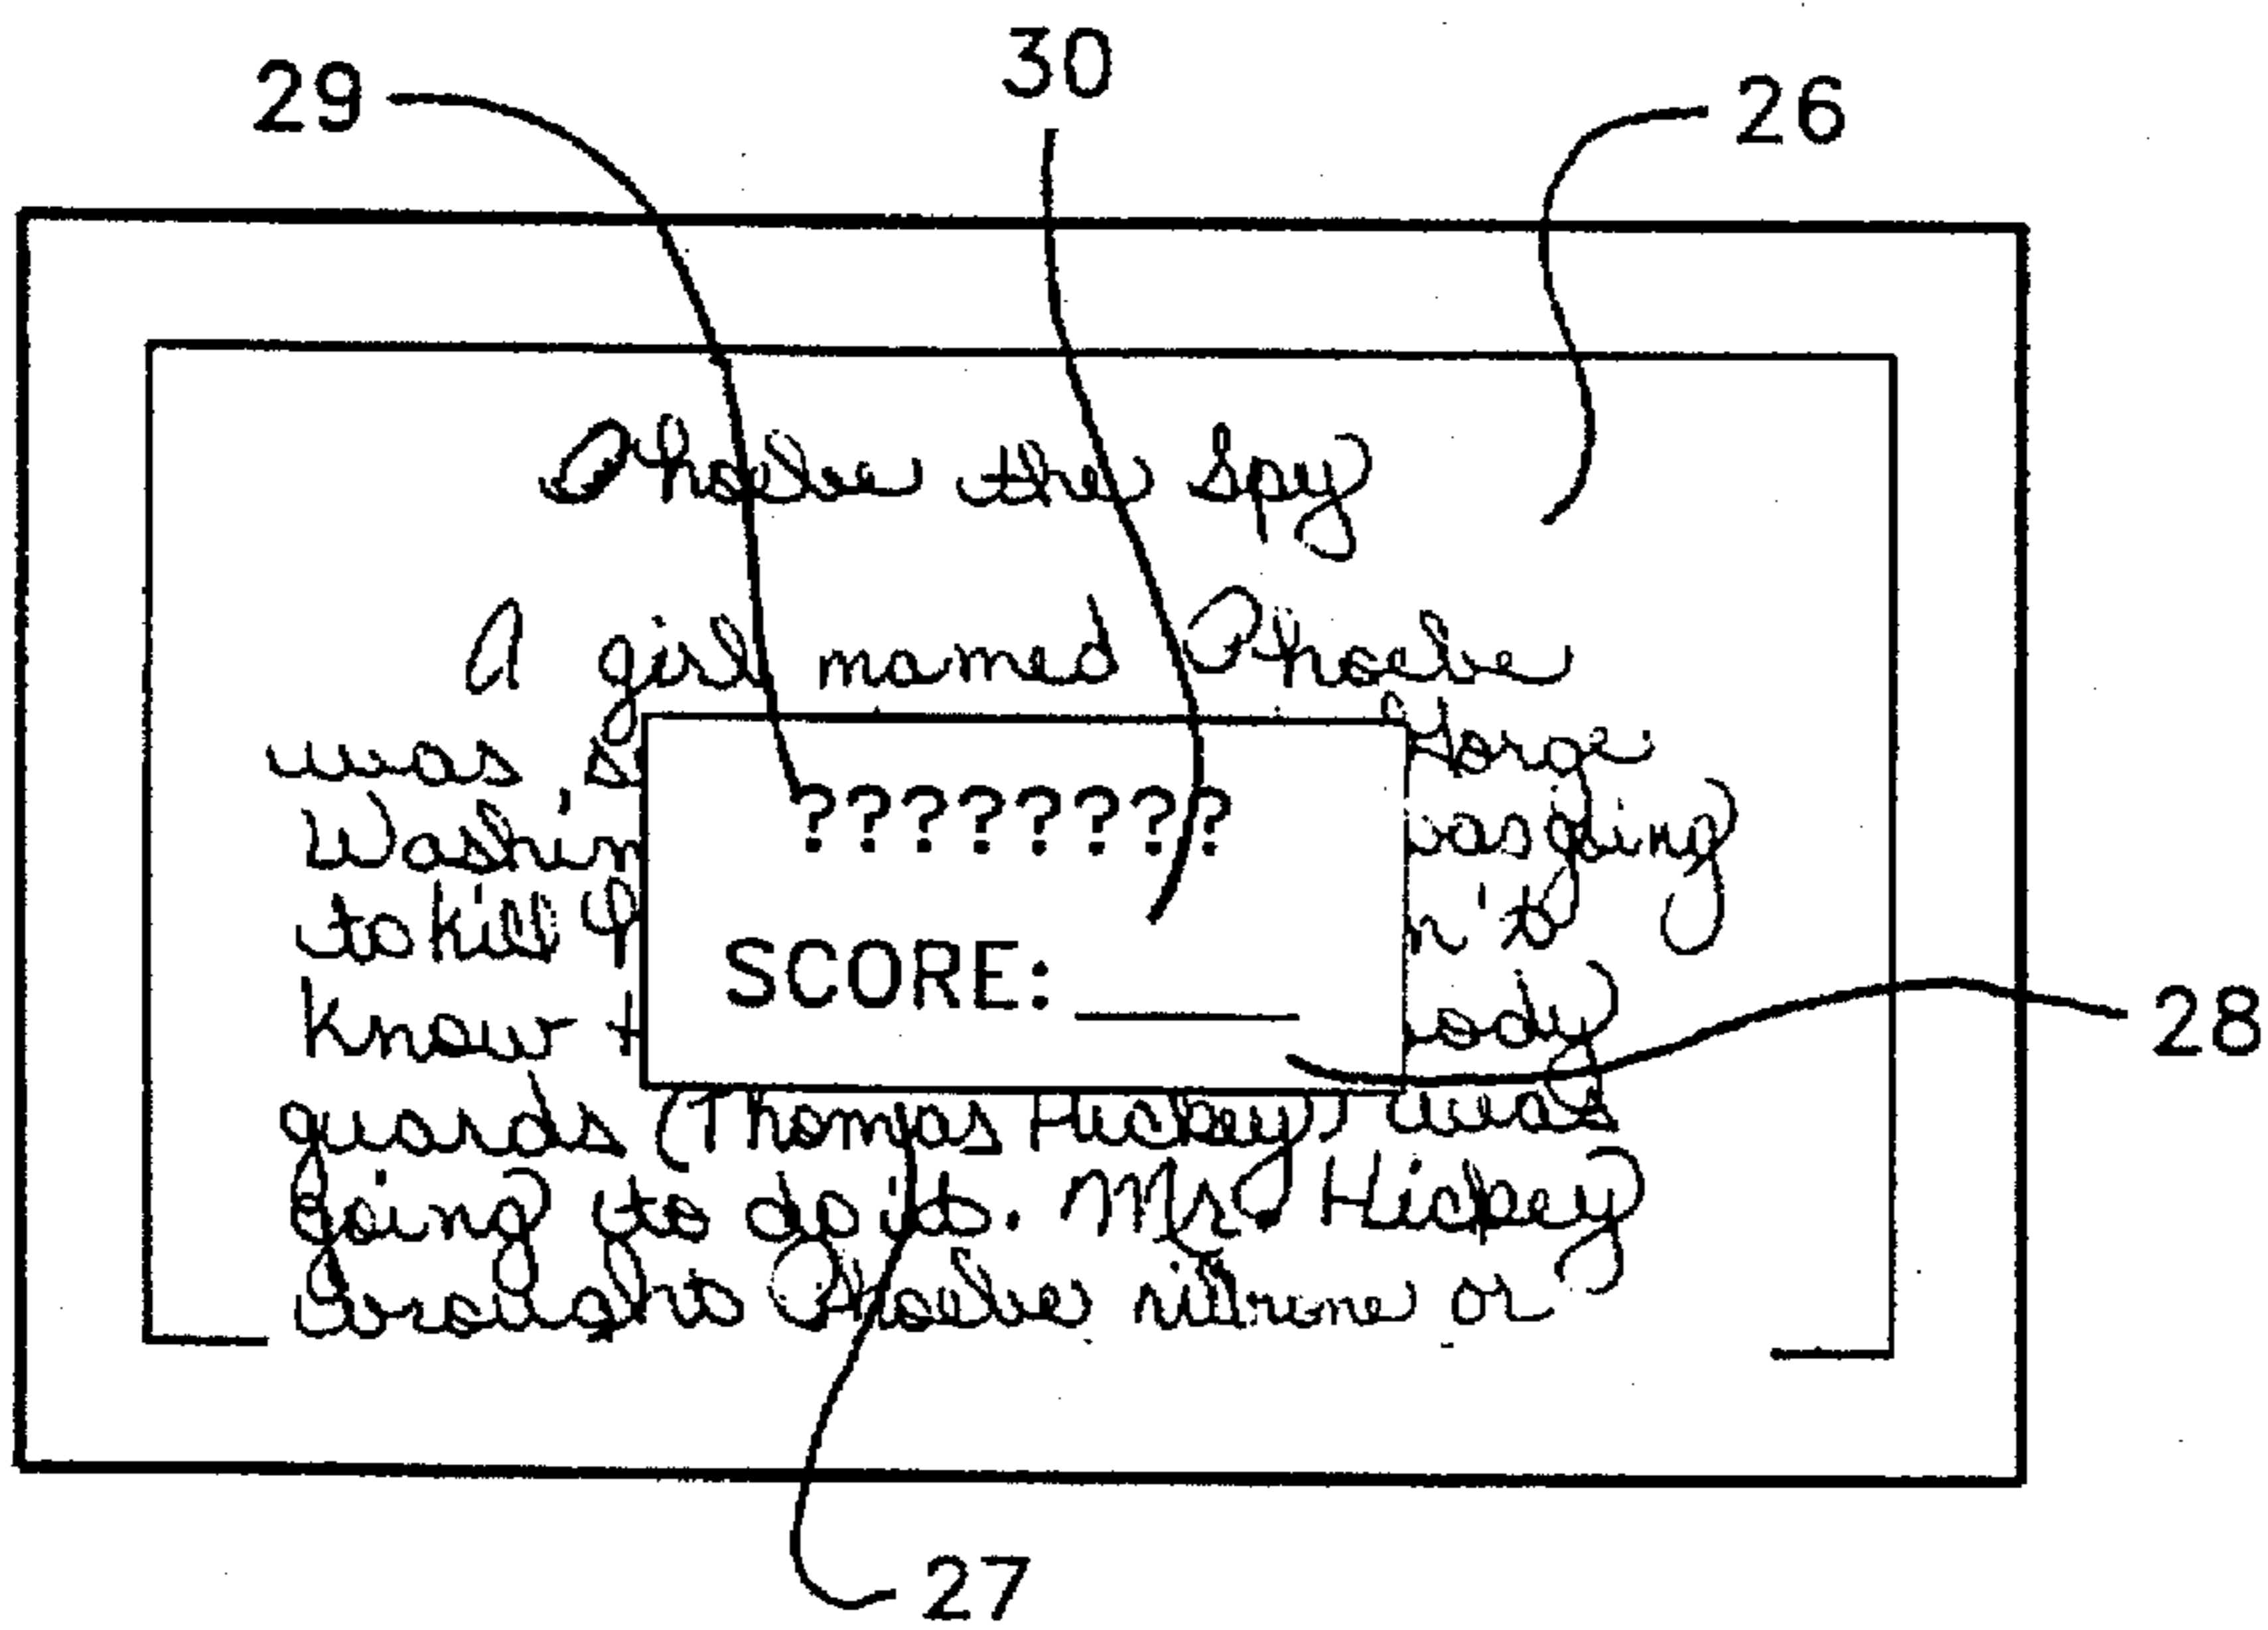 29 30 26
Phoebe the Spy
A girl named Phoebe
was
Washin was going
????????
to kill
SCORE: ____
28
know
guards (Thomas Hickey) was
going to do it. Mr. Hickey
brought Phoebe or
27